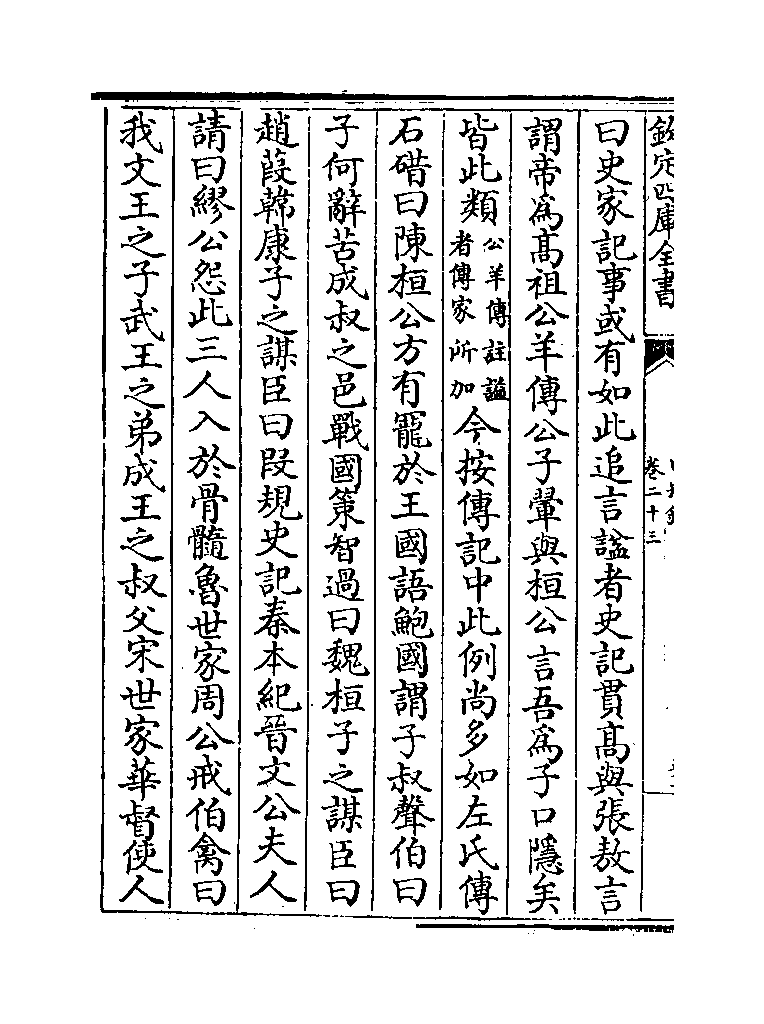 欽定四庫全書
卷二十三
曰史家記事或有如此追言諡者史記貫高與張敖言
謂帝為髙祖公羊傳公子翬與桓公言吾為子口隱矣
皆此類公羊傳註諡者傳家所加今按傳記中此例尚多如左氏傳
石碏曰陳桓公方有寵於王國語鮑國謂子叔聲伯曰
子何辭苦成叔之邑戰國策智過曰魏桓子之謀臣曰
趙葭韓康子之謀臣曰段規史記秦本紀晉文公夫人
請曰繆公怨此三人入於骨髓魯世家周公戒伯禽曰
我文王之子武王之弟成王之叔父宋世家華督使人